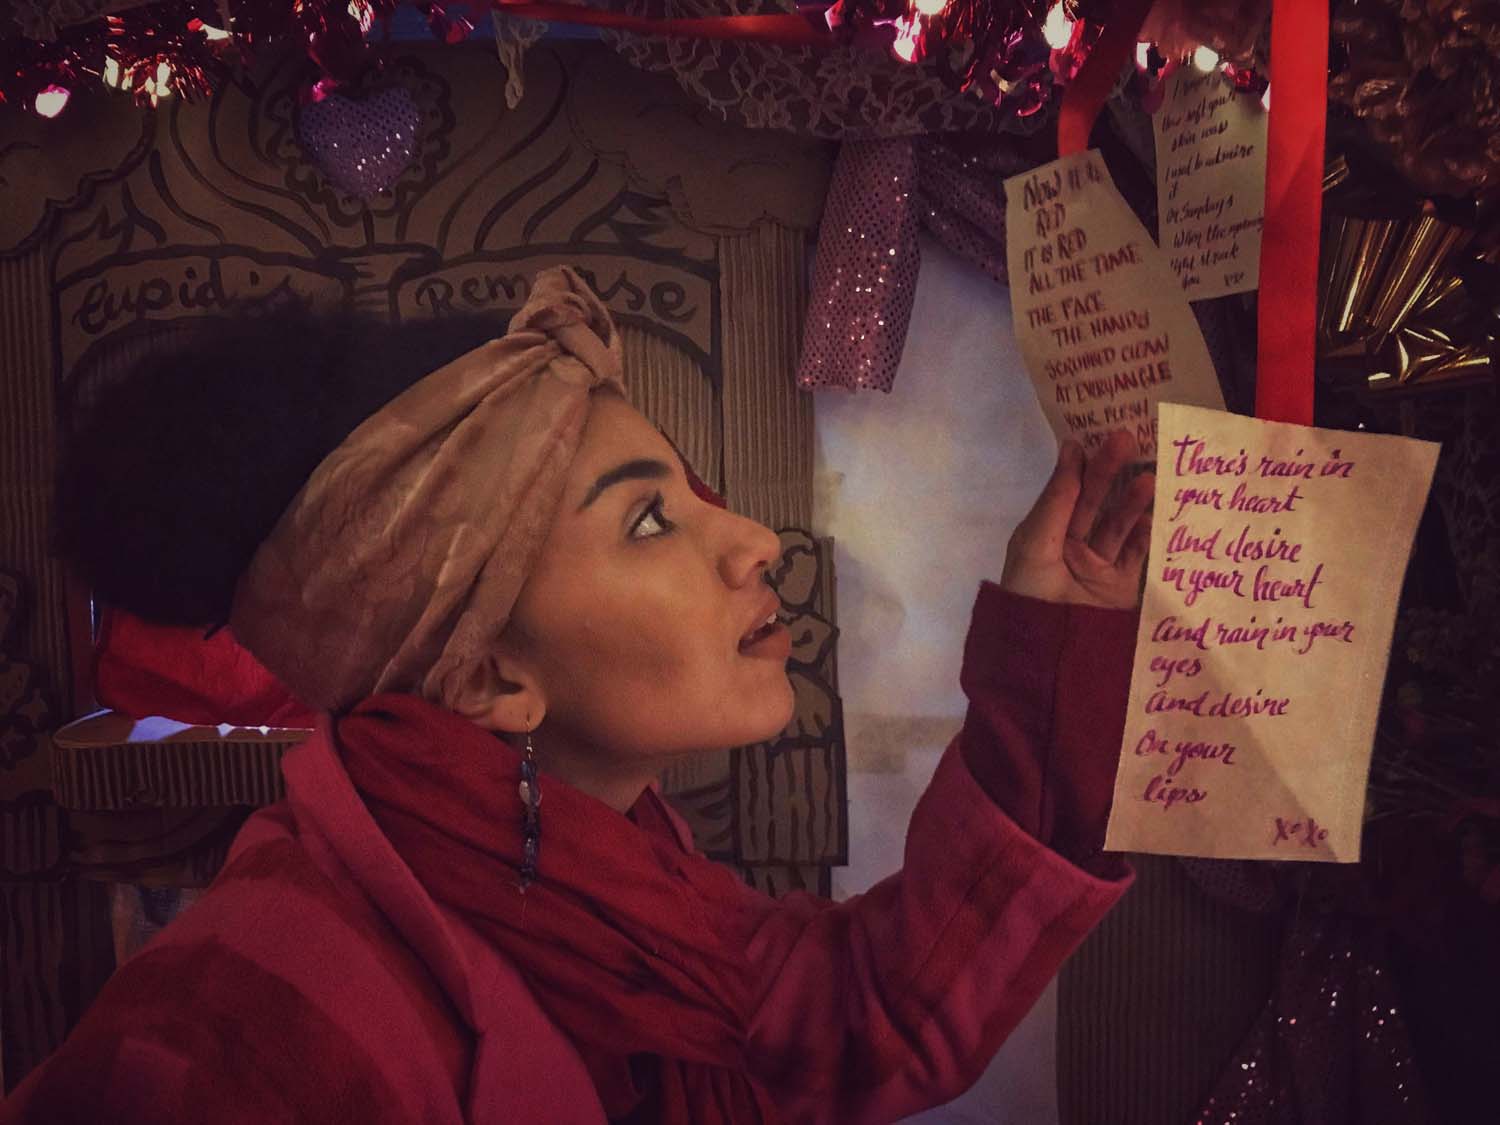 Cupid's Remorse
I
How soft your
skin was
I used to admire
it
On Sundays
When the
light struck
you xxx
NOW IT IS
RED
IT IS RED
ALL THE TIME
THE FACE
THE HANDS
SCRUBBED CLEAN
AT EVERY ANGLE
YOUR FLESH
There's rain in
your heart
And desire
in your heart
And rain in your
eyes
And desire
On your
lips
XoXo